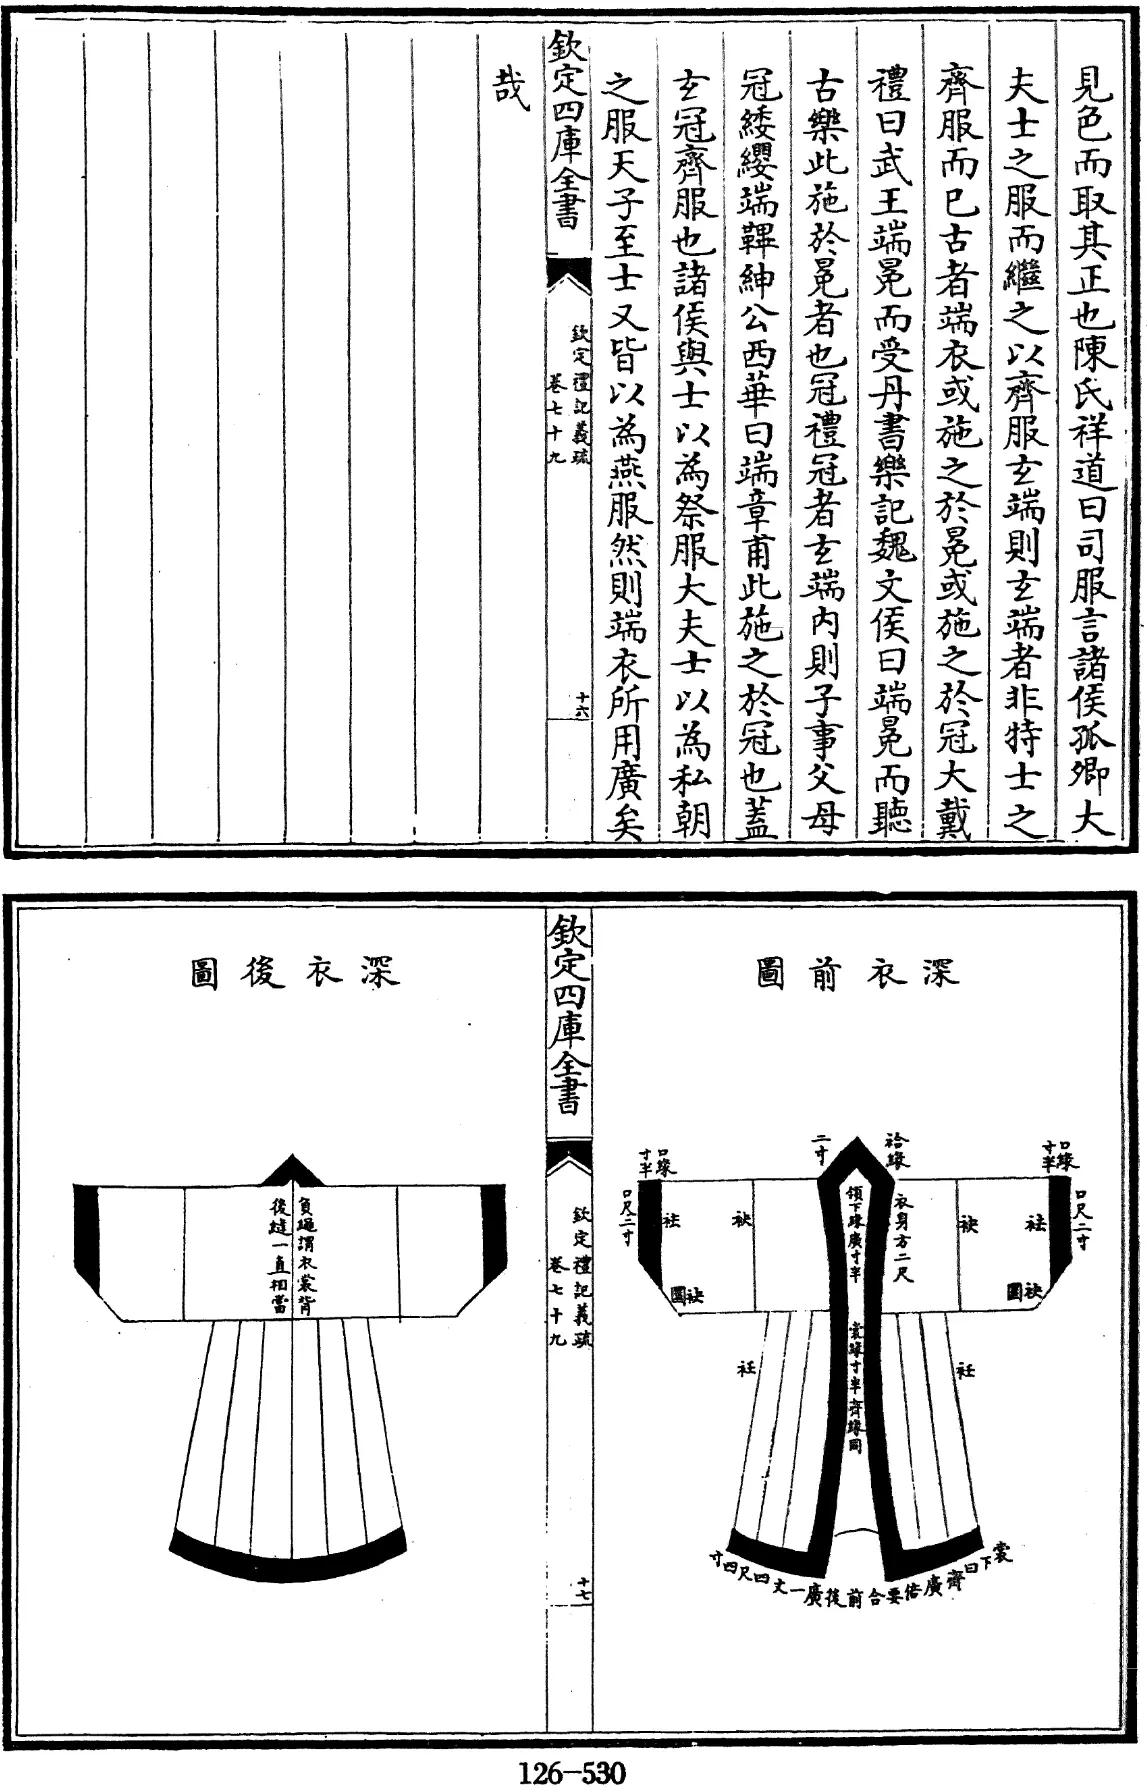 見色而取其正也陳氏祥道曰司服言諸侯孤卿大
夫士之服而繼之以齊服玄端則玄端者非特士之
齊服而已古者端衣或施之於冕或施之於冠大戴
禮曰武王端冕而受丹書樂記魏文侯曰端冕而聽
古樂此施於冕者也冠禮冠者玄端內則子事父母
冠緌纓端韠紳公西華曰端章甫此施之於冠也蓋
玄冠齊服也諸侯與士以為祭服大夫士以為私朝
之服天子至士又皆以為燕服然則端衣所用廣矣
欽定四庫全書
欽定禮記義疏
卷七十九
十六
哉
深衣前圖
口緣
寸半
口尺二寸
袷緣
二寸
衣身方二尺
領下緣廣寸半
裳緣寸半齊緣同
袪
袂
袂圜
袂
袪
袂圜
口緣
寸半
口尺二寸
衽
衽
裳下曰齊廣倍要合前後廣一丈四尺四寸
欽定四庫全書
欽定禮記義疏
卷七十九
十七
深衣後圖
負繩謂衣裳背
後縫一直相當
126-530